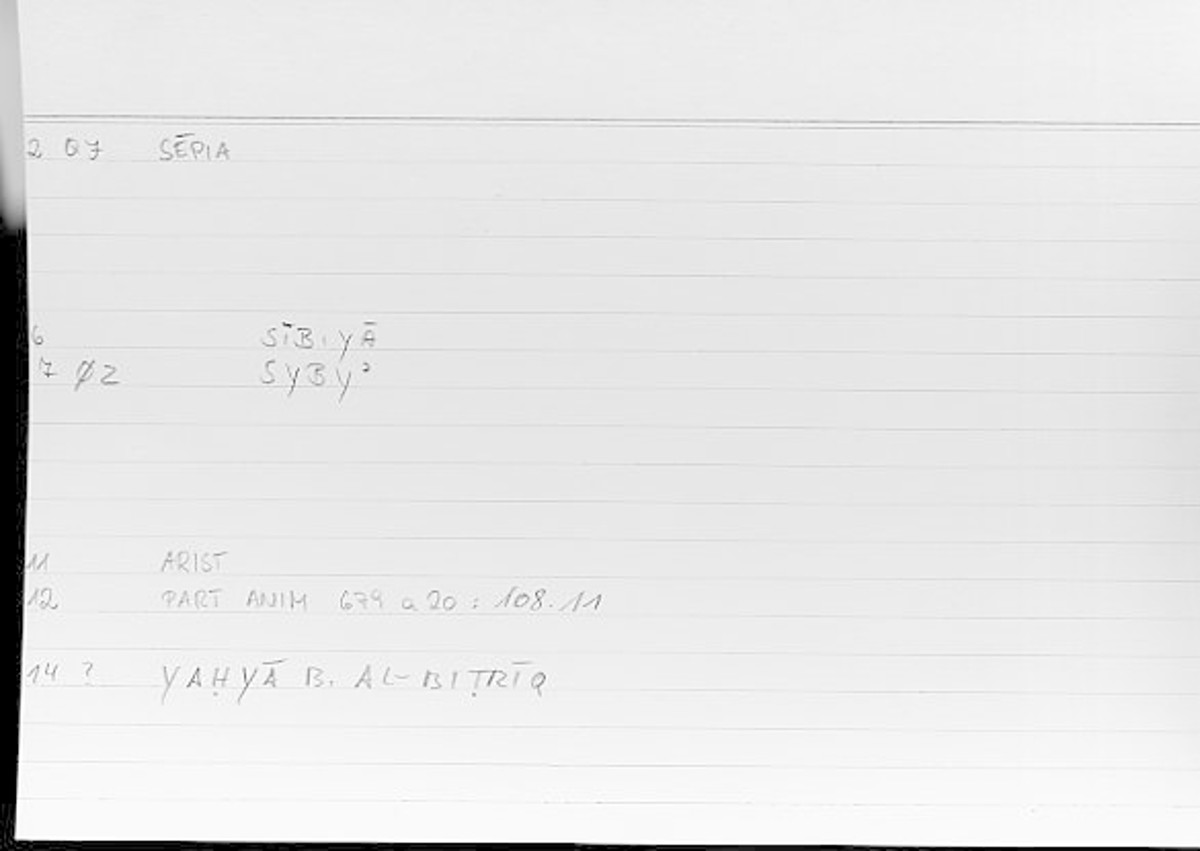 2 07 SĒPIA
6 SĪBIYĀ
7 Ø2 SYBYʾ
11 ARIST
12 PART ANIM 679 a 20 : 108.11
14 ? YAḤYĀ B. AL-BIṬRĪQ